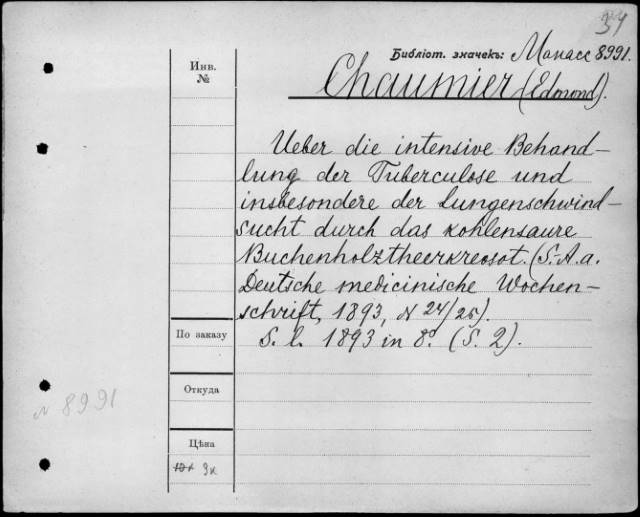 34
Библіот. значекъ: Манасс 8991.
Инв.
№
Chaumier (Edmond).
Ueber die intensive Behand-
lung der Tuberculose und
insbesondere der Lungenschwind-
sucht durch das kohlensaure
Buchenholztheerkreosot. (S.-A. a.
Deutsche medicinische Wochen-
schrift, 1893, N 24/25).
По заказу
S. l. 1893 in 8°. (S. 2).
Откуда
N 8991
Цѣна
3к